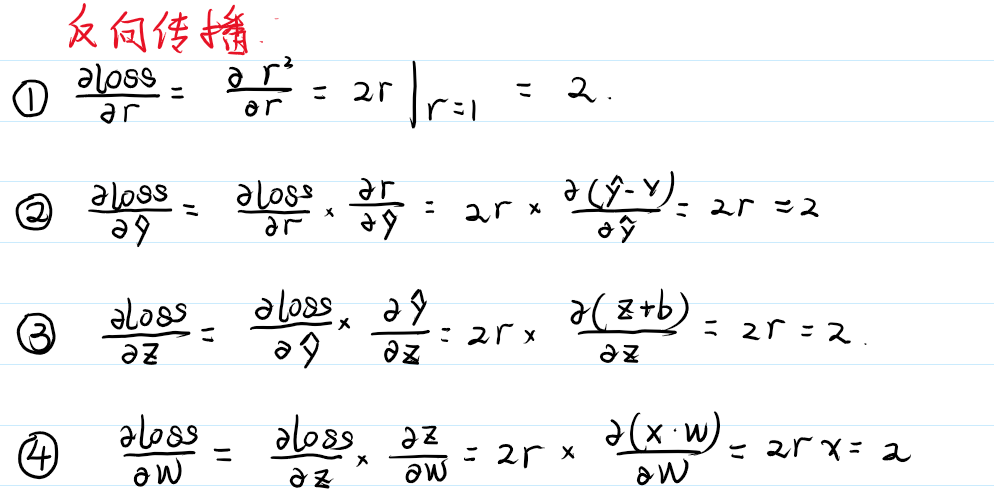 反向传播.
① ∂loss/∂r = ∂r²/∂r = 2r |r=1 = 2.
② ∂loss/∂ŷ = ∂loss/∂r × ∂r/∂ŷ = 2r × ∂(ŷ-y)/∂ŷ = 2r = 2
③ ∂loss/∂z = ∂loss/∂ŷ × ∂ŷ/∂z = 2r × ∂(z+b)/∂z = 2r = 2.
④ ∂loss/∂w = ∂loss/∂z × ∂z/∂w = 2r × ∂(x·w)/∂w = 2rx = 2